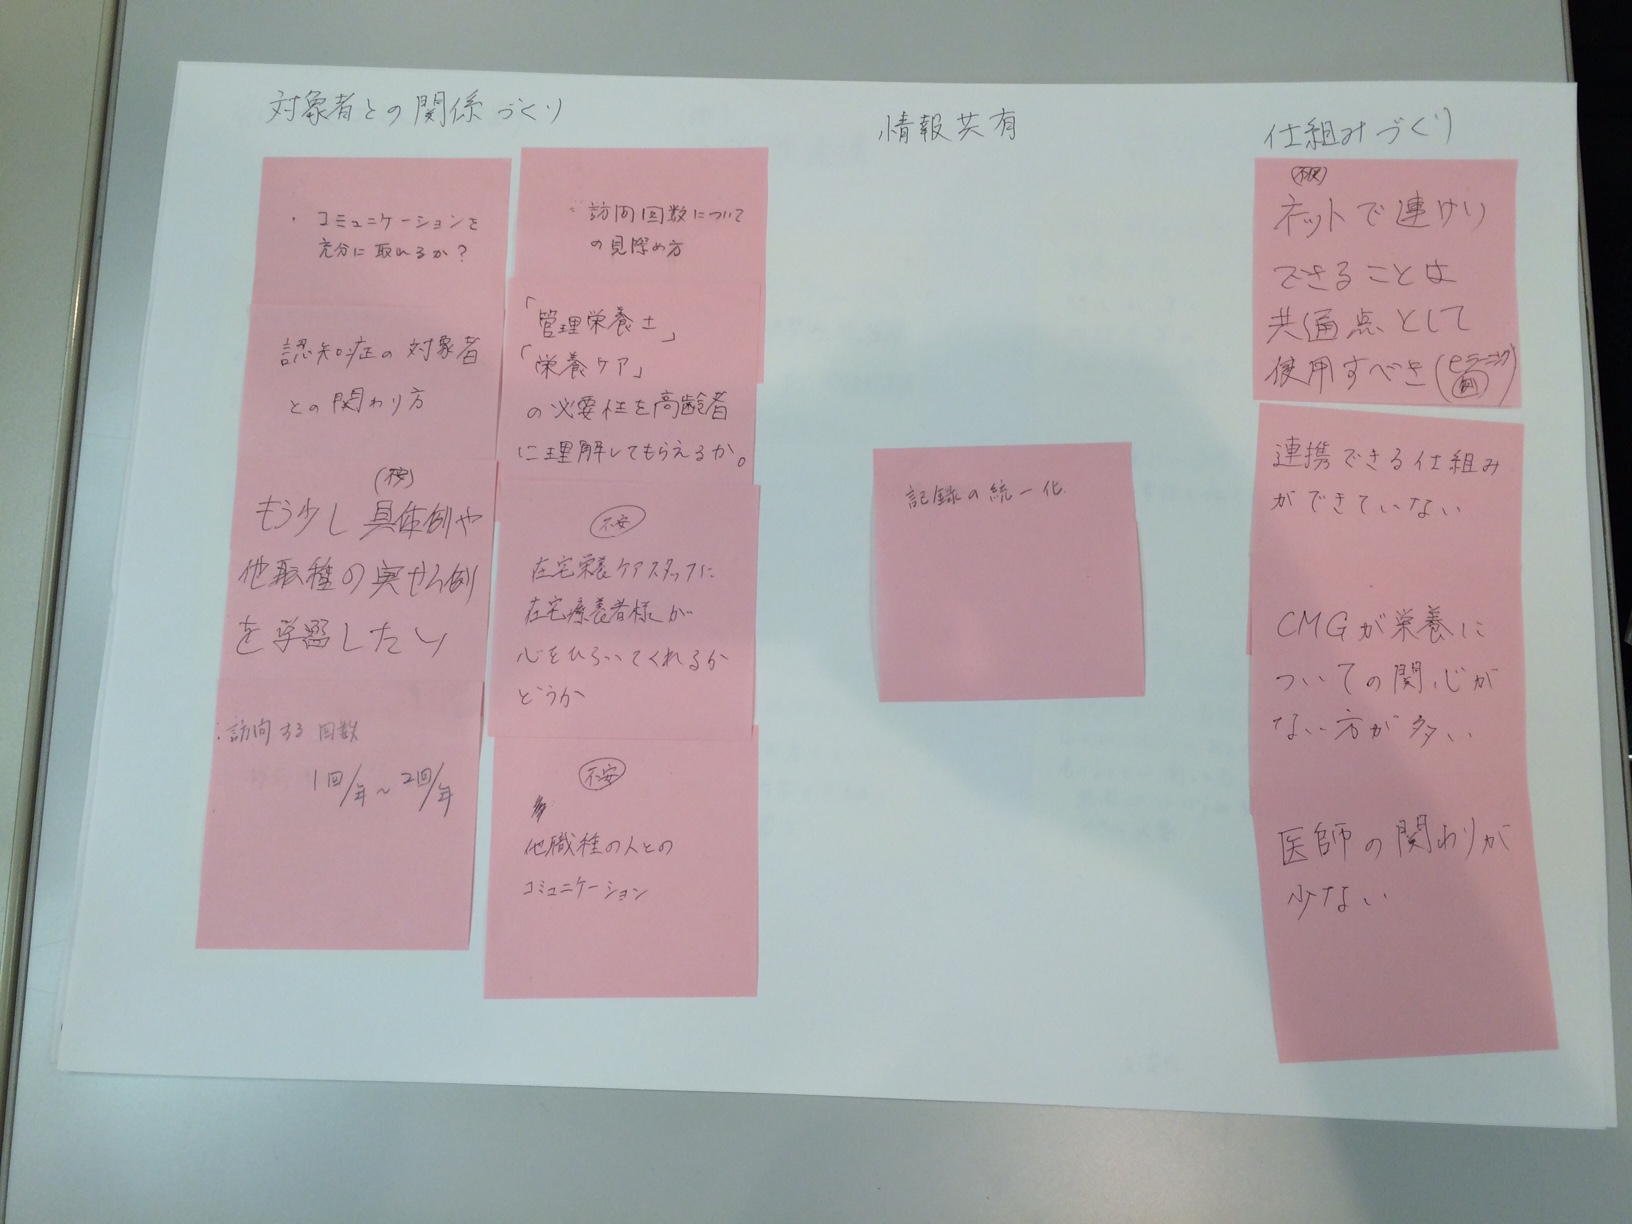 対象者との関係づくり
・コミュニケーションを
充分に取れるか?
認知症の対象者
との関わり方
(不安)
もう少し具体例や
他職種の実せん例
を学習したい
訪問する回数
1回/年~2回/年
訪問回数について
の見深め方
「管理栄養士」
「栄養ケア」
の必要性を高齢者
に理解してもらえるか。
不安
在宅栄養ケアスタッフに
在宅療養者様が
心をひらいてくれるか
どうか
不安
他職種の人との
コミュニケーション
情報共有
記録の統一化
仕組みづくり
ネットで連けい
できることは
共通点として
使用すべき(eラーニング)
連携できる仕組み
ができていない
CMGが栄養に
ついての関心が
ない方が多い
医師の関わりが
少ない